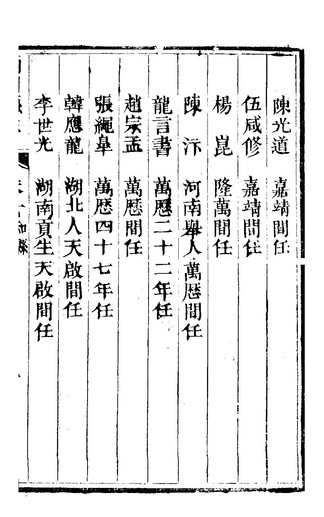 陳光道　嘉靖間任
伍咸修　嘉靖間任
楊　崑　隆萬間任
陳　汴　河南舉人萬曆間任
龍言書　萬曆二十二年任
趙宗孟　萬曆間任
張繩皐　萬曆四十七年任
韓應龍　湖北人天啟間任
李世光　湖南貢生天啟間任